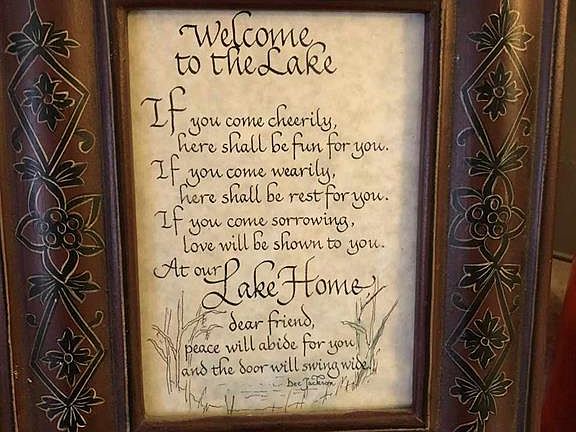 Welcome
to the Lake
If you come cheerily,
here shall be fun for you.
If you come wearily,
here shall be rest for you.
If you come sorrowing,
love will be shown to you.
At our Lake Home,
dear friend,
peace will abide for you
and the door will swing wide.
Dee Jackson